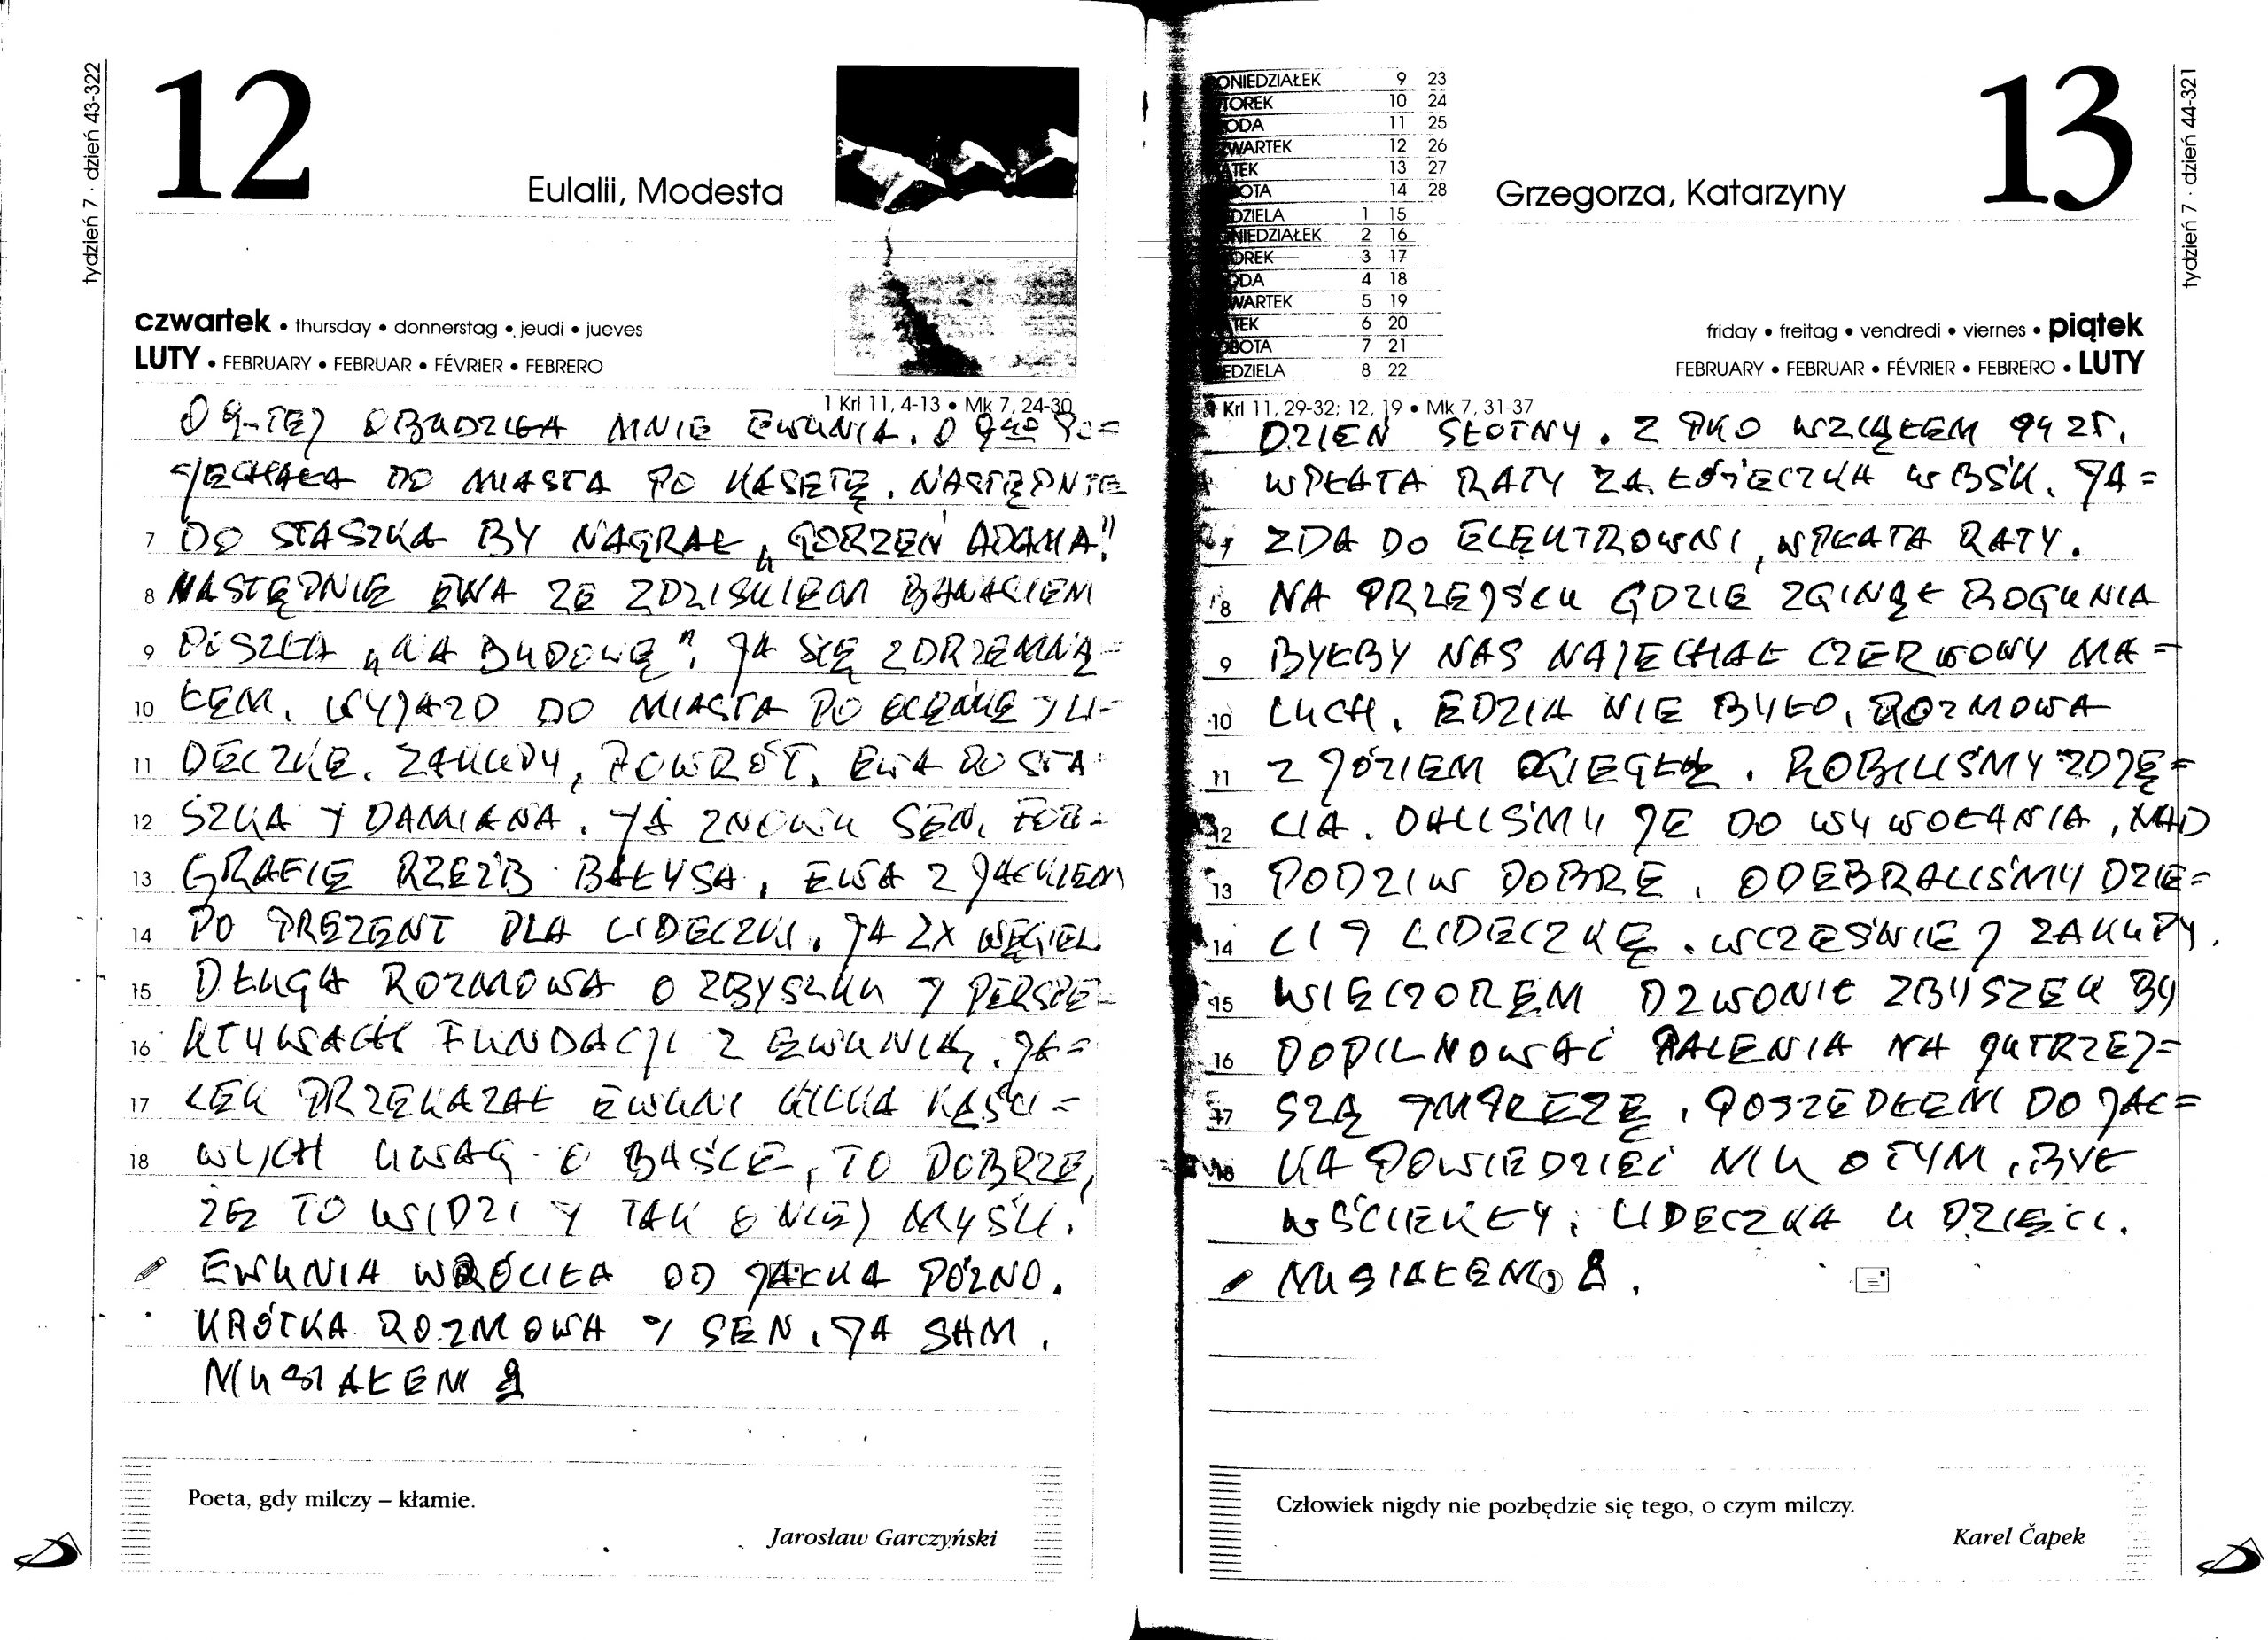 12
tydzień 7 · dzień 43-322
Eulalii, Modesta
czwartek • thursday • donnerstag • jeudi • jueves
LUTY • FEBRUARY • FEBRUAR • FÉVRIER • FEBRERO
1 Krl 11, 4-13 • Mk 7, 24-30
O 9-TEJ OBUDZIŁA MNIE EWUNIA. O 9 40 PO=
JECHAŁA DO MIASTA PO KASETĘ. NASTĘPNIE
7 DO STASZKA BY NAGRAŁ „GORZEŃ ADAMA."
8 NASTĘPNIE EWA ZE ZDZISKIEM BANASIEM
9 POSZŁA „NA BUDOWĘ". JA SIĘ ZDRZEMNĄ-
10 ŁEM. WYJAZD DO MIASTA PO I LI-
11 DECZKĘ. ZAKUPY, POWRÓT. EWA DO STA-
12 SZKA I DAMIANA. JA ZNOWU SEN. FOTO-
13 GRAFIE RZEŹB BAŁYSA, EWA Z JACKIEM
14 PO PREZENT DLA LIDECZKI. JA 2X WĘGIEL.
15 DŁUGA ROZMOWA O ZBYSZKU I PERSPE-
16 KTYWACH FUNDACJI Z EWUNIĄ. JA=
17 CEK PRZEKAZAŁ EWUNI KILKA KĄŚLI=
18 WYCH UWAG O BAŚCE, TO DOBRZE,
ŻE TO WIDZI I TAK O NIEJ MYŚLI.
EWUNIA WRÓCIŁA OD JACKA PÓŹNO.
KRÓTKA ROZMOWA I SEN. JA SAM.
MUSIAŁEM
Poeta, gdy milczy – kłamie.
Jarosław Garczyński
PONIEDZIAŁEK 9 23
WTOREK 10 24
ŚRODA 11 25
CZWARTEK 12 26
PIĄTEK 13 27
SOBOTA 14 28
NIEDZIELA 1 15
PONIEDZIAŁEK 2 16
WTOREK 3 17
ŚRODA 4 18
CZWARTEK 5 19
PIĄTEK 6 20
SOBOTA 7 21
NIEDZIELA 8 22
13
tydzień 7 · dzień 44-321
Grzegorza, Katarzyny
friday • freitag • vendredi • viernes • piątek
FEBRUARY • FEBRUAR • FÉVRIER • FEBRERO • LUTY
1 Krl 11, 29-32; 12, 19 • Mk 7, 31-37
DZIEŃ SŁOTNY. Z PKO WZIĄŁEM
WPŁATA RATY ZA ŁÓŻECZKA W BSK. JA=
7 ZDA DO ELEKTROWNI, WPŁATA RATY.
8 NA PRZEJŚCU GDZIE ZGINĄŁ BOGUNIA
9 BYŁBY NAS NAJECHAŁ CZERWONY MA=
10 LUCH. EDZIA NIE BYŁO, ROZMOWA
11 Z JÓZIEM CIEGŁĄ. ROBILIŚMY ZDJĘ=
12 CIA. DALIŚMY JE DO WYWOŁANIA, NAD
13 PODZIW DOBRE. ODEBRALIŚMY DZIE=
14 CI I LIDECZKĘ. WCZEŚNIEJ ZAKUPY.
15 WIECZOREM DZWONIŁ ZBYSZEK BY
16 DOPILNOWAĆ PALENIA NA JUTRZEJ=
17 SZĄ IMPREZĘ. POSZEDŁEM DO JAC=
18 KA POWIEDZIEĆ MU O TYM, BYŁ
WŚCIEKŁY. LIDECZKA U DZIECI.
MUSIAŁEM
Człowiek nigdy nie pozbędzie się tego, o czym milczy.
Karel Čapek